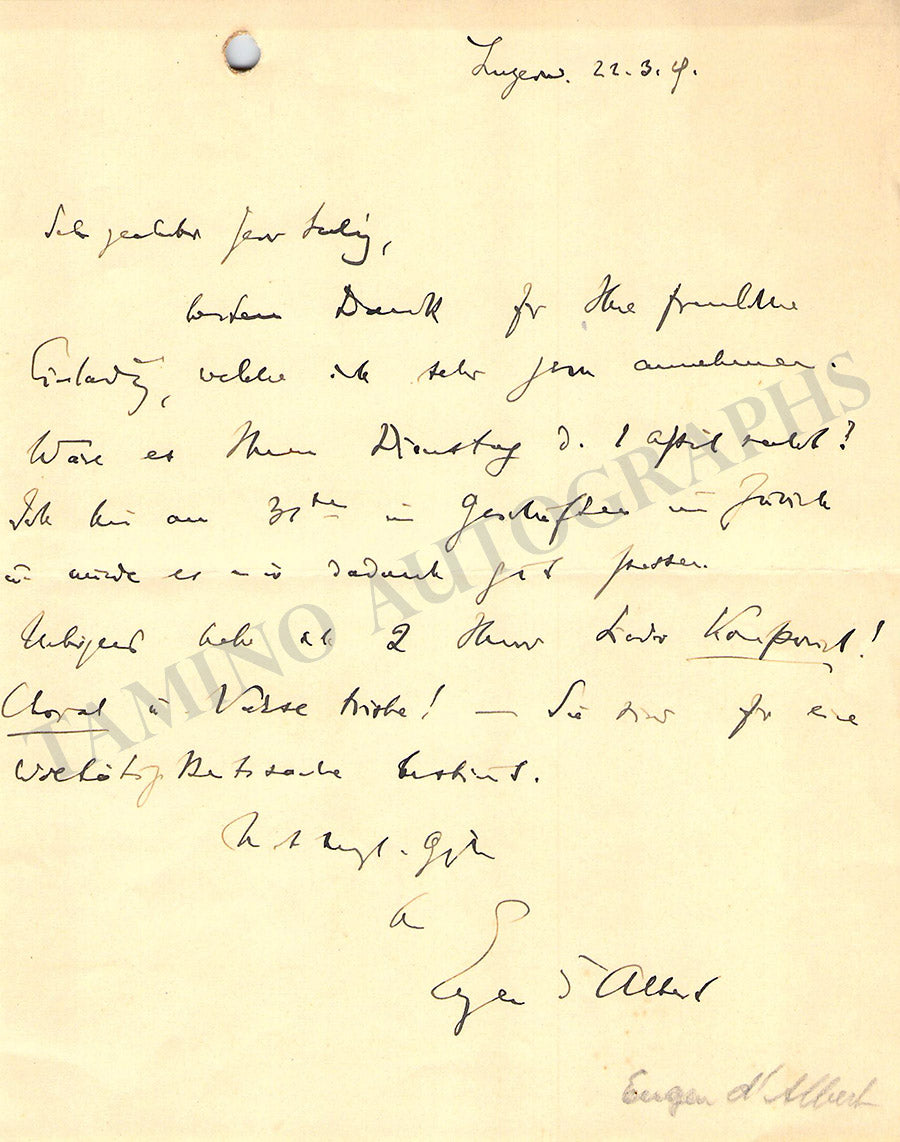 Luzern. 22.3.
Sehr geehrter Herr
besten Dank für Ihre freundliche
Einladung, welche ich sehr gern annehmen.
Wäre es Ihnen Dienstag d. 1 April recht?
Ich bin am 31ten in Geschäften in Zürich
u. würde es mir dadurch gut passen.
Uebrigens habe ich 2 Ihrer Lieder Komponirt!
Choral u. Verse! — Sie sind für eine
Wohltätigkeitssache bestimmt.
Mit
Eugen d'Albert
Eugen d'Albert
TAMINO AUTOGRAPHS